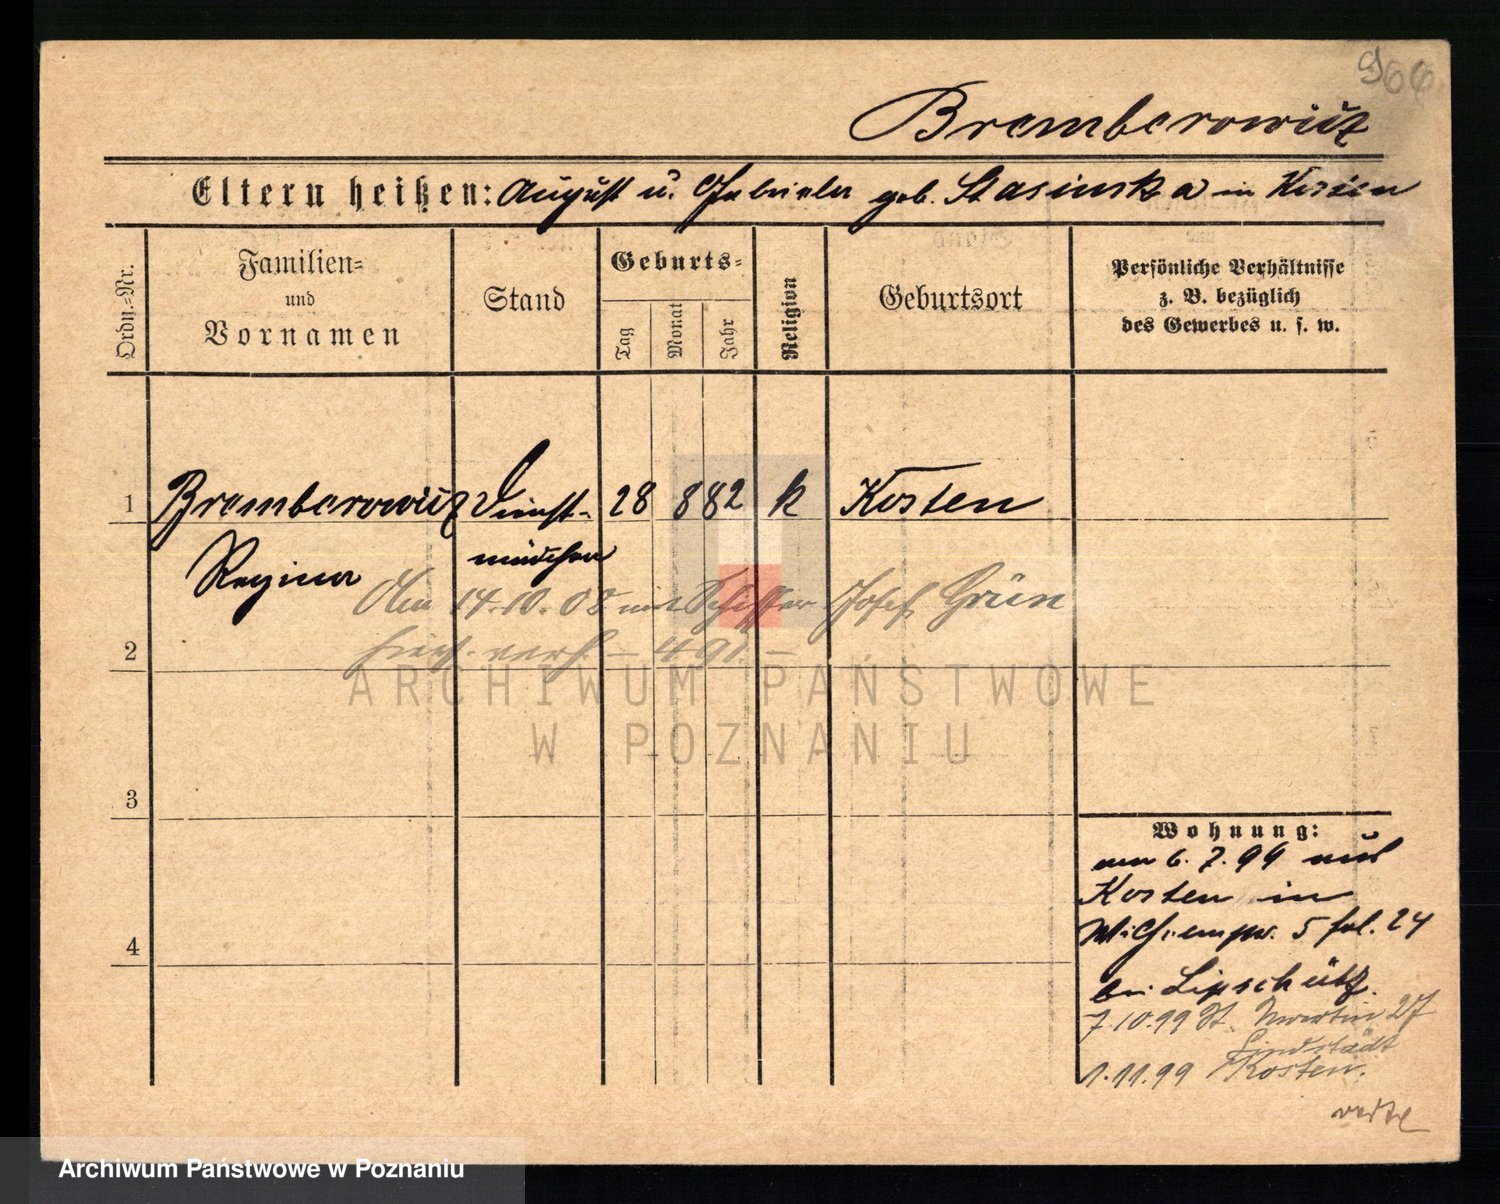 966
Bremberowicz
Eltern heißen: August u. Gabriela geb. Stasinska in Kosten
Ordn.-Nr.
Familien-
und
Vornamen
Stand
Geburts-
Tag
Monat
Jahr
Religion
Geburtsort
Persönliche Verhältnisse
z. B. bezüglich
des Gewerbes u. s. w.
1 Bremberowicz Dienst- 28 8 82 k Kosten
Regina mädchen
Am 14.10.08 mit Schiffer Josef Grün
hier verh. – 491. –
2
3
4
Wohnung:
am 6.7.99 aus
Kosten in
5 fol. 24
bei Lipschütz.
7.10.99 St. Martin 27
Lindstädt
1.11.99 Kosten.
ARCHIWUM PAŃSTWOWE
W POZNANIU
Archiwum Państwowe w Poznaniu